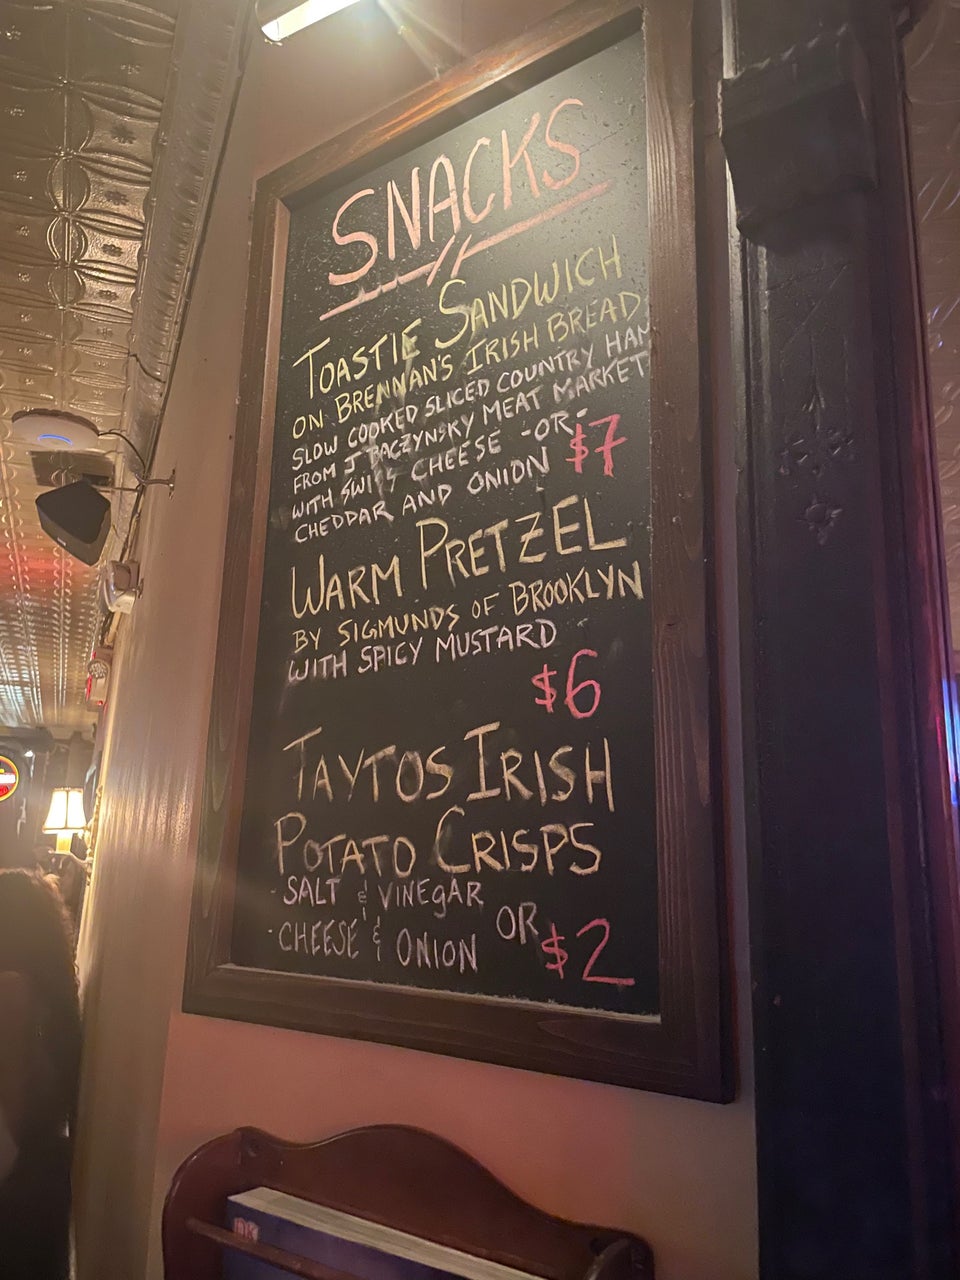 SNACKS
TOASTIE SANDWICH
ON BRENNAN'S IRISH BREAD
SLOW COOKED SLICED COUNTRY HAM
FROM J. BACZYNSKY MEAT MARKET
WITH SWISS CHEESE -OR-
CHEDDAR AND ONION $7
WARM PRETZEL
BY SIGMUNDS OF BROOKLYN
WITH SPICY MUSTARD
$6
TAYTOS IRISH
POTATO CRISPS
- SALT & VINEGAR
OR
- CHEESE & ONION
$2